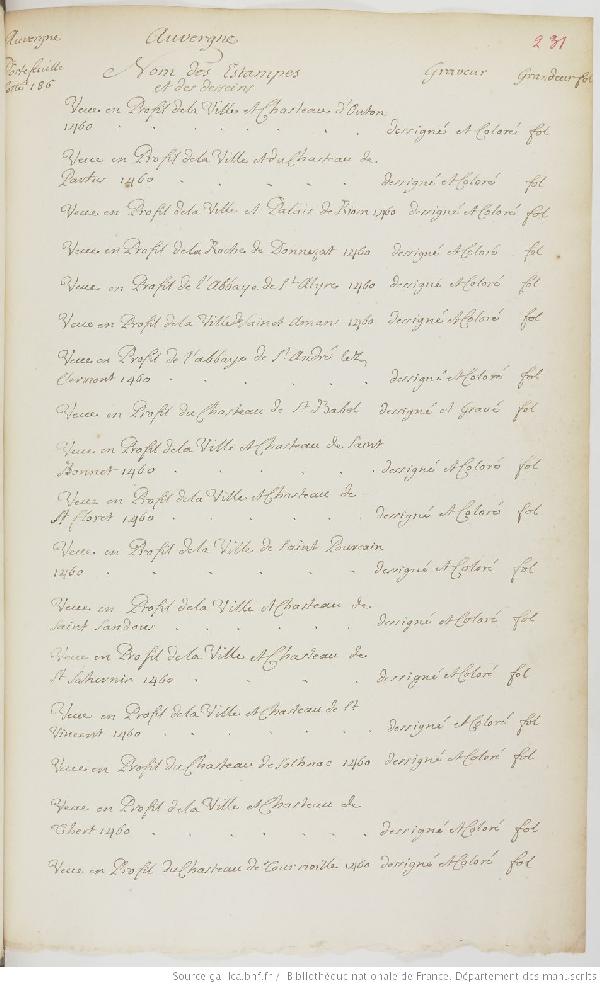 Auvergne
Auvergne
231
Portefeuille
186
Nom des Estampes
et des desseins
Graveur
Grandeur fol
Veue en Profil dela Ville et Chasteau d'Outon
1460 dessigné et Coloré fol
Veue en Profil dela Ville et du Chasteau de
1460 dessigné et Coloré fol
Veue en Profil dela Ville et Palais de Riom 1460 dessigné et Coloré fol
Veue en Profil dela Roche de Donnezat 1460 dessigné et Coloré fol
Veue en Profil de l'Abbaye de St Alyre 1460 dessigné et Coloré fol
Veue en Profil dela Ville de Sainct Amans 1460 dessigné et Coloré fol
Veue en Profil de l'abbaye de St André lez
Clermont 1460 dessigné et Coloré fol
Veue en Profil du Chasteau de St Babel dessigné et Gravé fol
Veue en Profil dela Ville et Chasteau de Saint
Bonnet 1460 dessigné et Coloré fol
Veue en Profil dela Ville et Chasteau de
St Floret 1460 dessigné et Coloré fol
Veue en Profil dela Ville de Saint Pourcain
1460 dessigné et Coloré fol
Veue en Profil dela Ville et Chasteau de
Saint Sandous dessigné et Coloré fol
Veue en Profil dela Ville et Chasteau de
St 1460 dessigné et Coloré fol
Veue en Profil dela Ville et Chasteau de St
Vincent 1460 dessigné et Coloré fol
Veue en Profil du Chasteau de 1460 dessigné et Coloré fol
Veue en Profil dela Ville et Chasteau de
1460 dessigné et Coloré fol
Veue en Profil du Chasteau de Tournoille 1460 dessigné et Coloré fol
Source gallica.bnf.fr / Bibliothèque nationale de France, Département des manuscrits